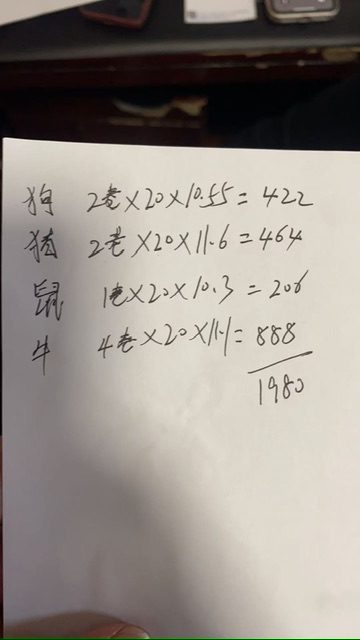 狗 2卷×20×10.55=422
猪 2卷×20×11.6=464
鼠 1卷×20×10.3=206
牛 4卷×20×11.1=888
1980